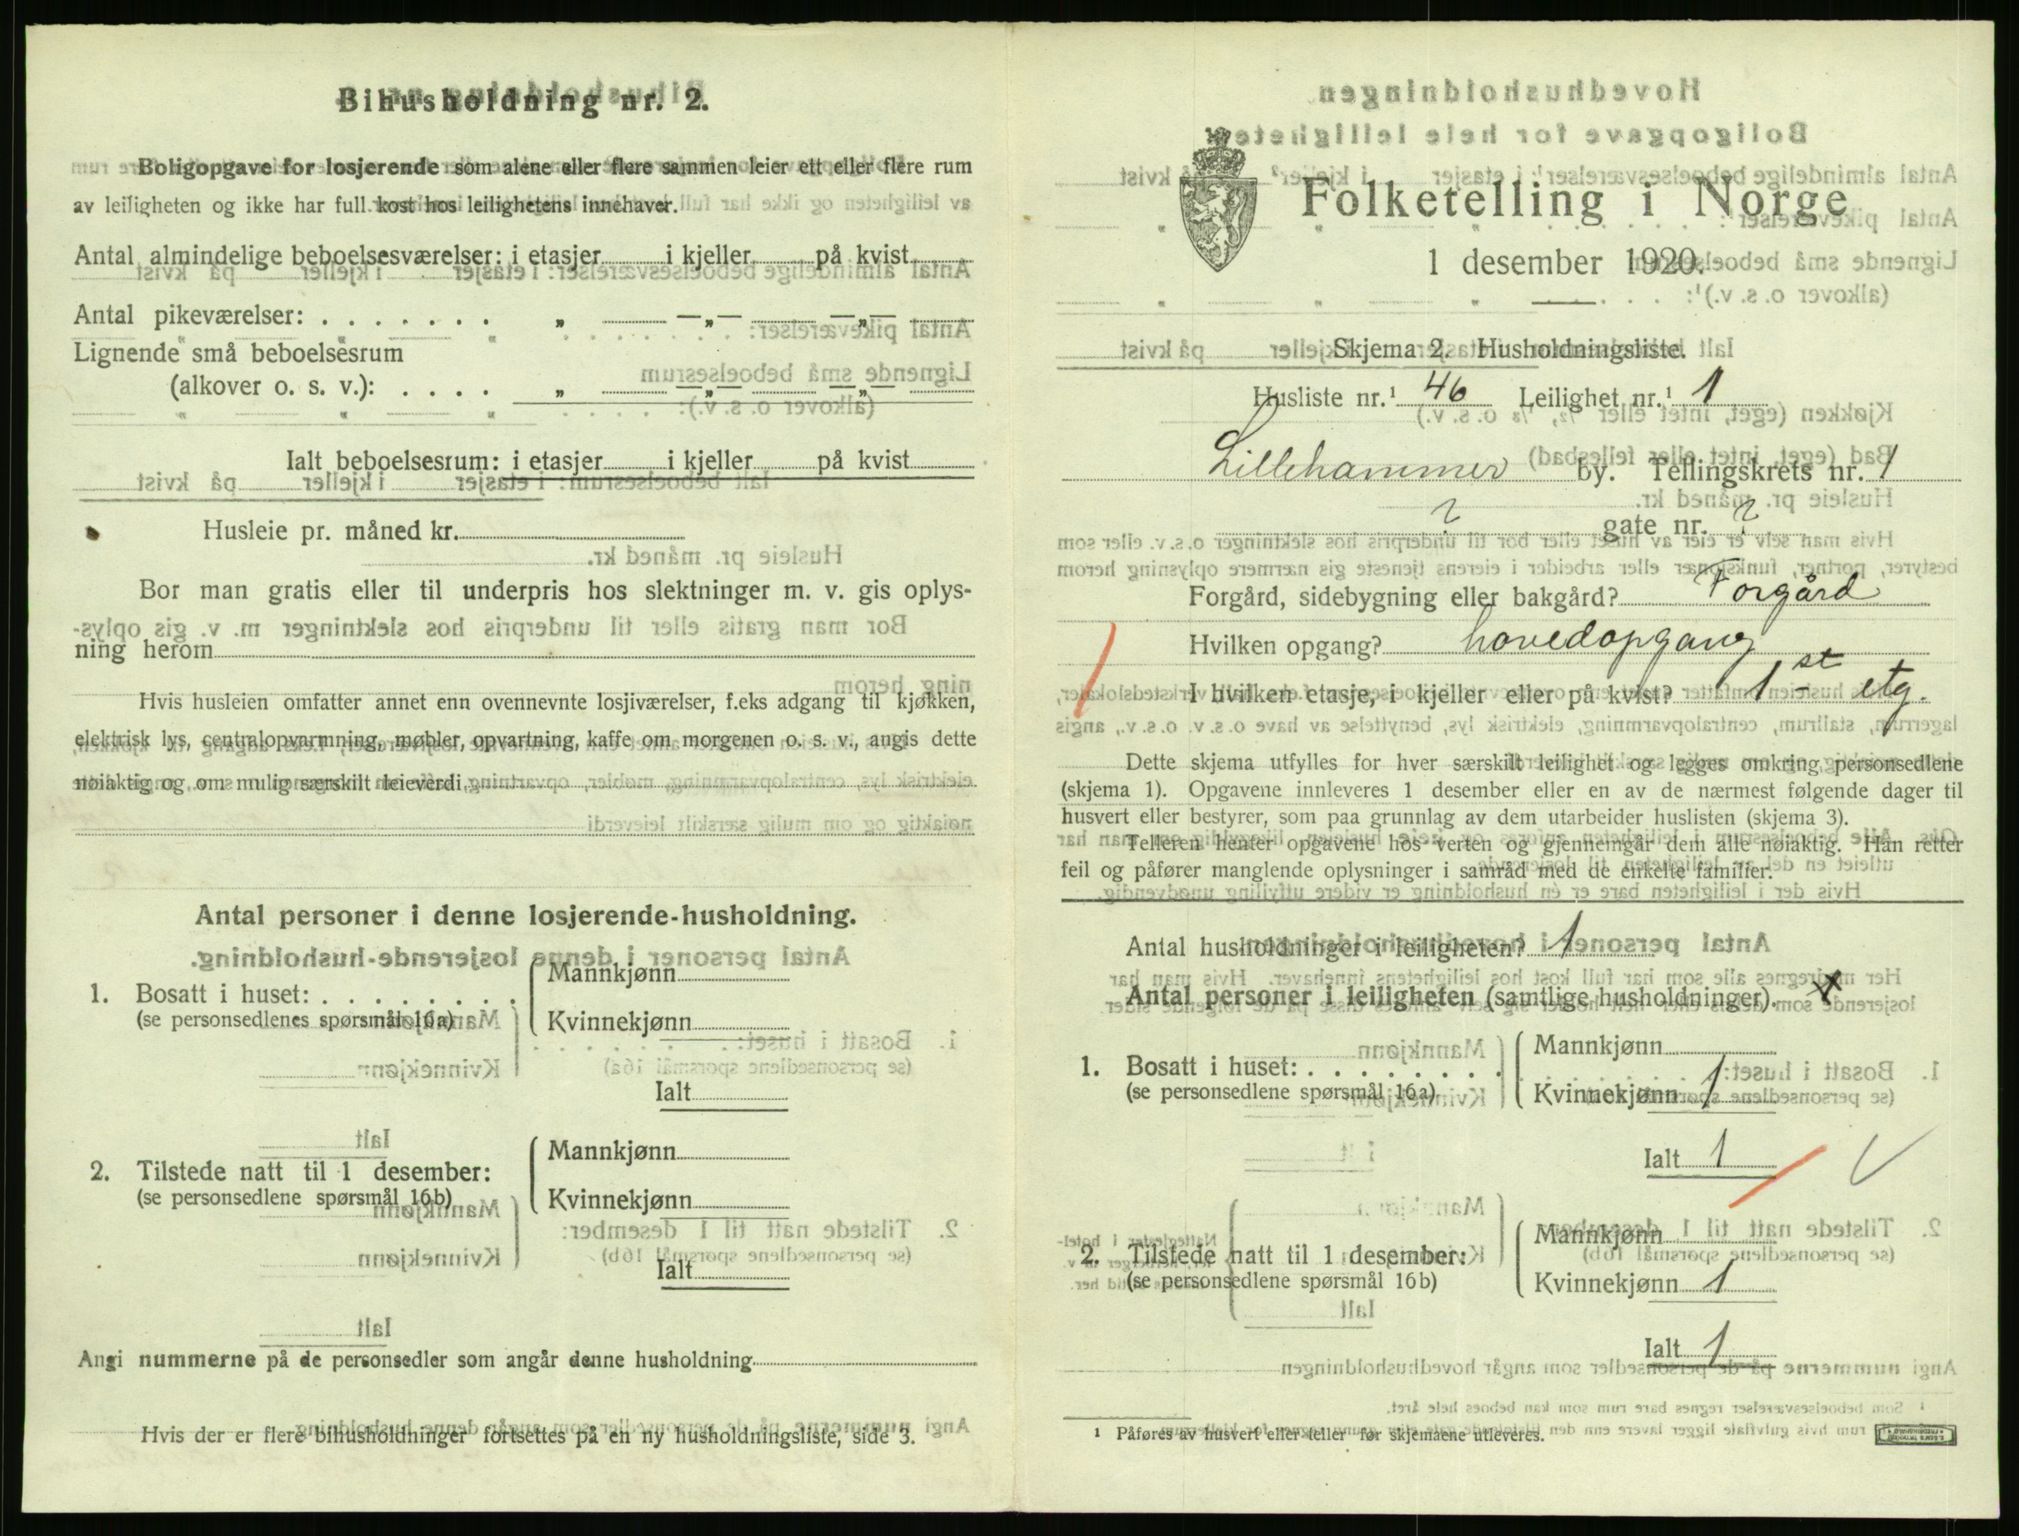 Bihusholdning nr. 2.
Boligopgave for losjerende som alene eller flere sammen leier ett eller flere rum
av leiligheten og ikke har full kost hos leilighetens innehaver.
Antal almindelige beboelsesværelser: i etasjer i kjeller på kvist
Antal pikeværelser: . . . . . . . „ —„— —„—
Lignende små beboelsesrum
(alkover o. s. v.): . . . . „ —„— —„—
Ialt beboelsesrum: i etasjer i kjeller på kvist
Husleie pr. måned kr.
Bor man gratis eller til underpris hos slektninger m. v. gis oplys-
ning herom
Hvis husleien omfatter annet enn ovennevnte losjiværelser, f.eks adgang til kjøkken,
elektrisk lys, centralopvarmning, møbler, opvartning, kaffe om morgenen o. s. v., angis dette
nøiaktig og om mulig særskilt leieverdi.
Antal personer i denne losjerende-husholdning.
1. Bosatt i huset: . . . . . . . . Mannkjønn
(se personsedlenes spørsmål 16a) Kvinnekjønn
Ialt
2. Tilstede natt til 1 desember: Mannkjønn
(se personsedlene spørsmål 16b) Kvinnekjønn
Ialt
Angi nummerne på de personsedler som angår denne husholdning
Hvis der er flere bihusholdninger fortsettes på en ny husholdningsliste, side 3.
Folketelling i Norge
1 desember 1920.
Skjema 2. Husholdningsliste.
Husliste nr.¹ 46 Leilighet nr.¹ 1
Lillehammer by. Tellingskrets nr. 1
? gate nr. ?
Forgård, sidebygning eller bakgård? Forgård
Hvilken opgang? hovedopgang
I hvilken etasje, i kjeller eller på kvist? 1st etg.
Dette skjema utfylles for hver særskilt leilighet og legges omkring personsedlene
(skjema 1). Opgavene innleveres 1 desember eller en av de nærmest følgende dager til
husvert eller bestyrer, som paa grunnlag av dem utarbeider huslisten (skjema 3).
Telleren henter opgavene hos verten og gjennemgår dem alle nøiaktig. Han retter
feil og påfører manglende oplysninger i samråd med de enkelte familier.
Antal husholdninger i leiligheten? 1
Antal personer i leiligheten (samtlige husholdninger).
1. Bosatt i huset: . . . . . . . . Mannkjønn
(se personsedlene spørsmål 16a) Kvinnekjønn 1
Ialt 1
2. Tilstede natt til 1 desember: Mannkjønn
(se personsedlene spørsmål 16b) Kvinnekjønn 1
Ialt 1
¹ Påføres av husvert eller teller før skjemaene utleveres.